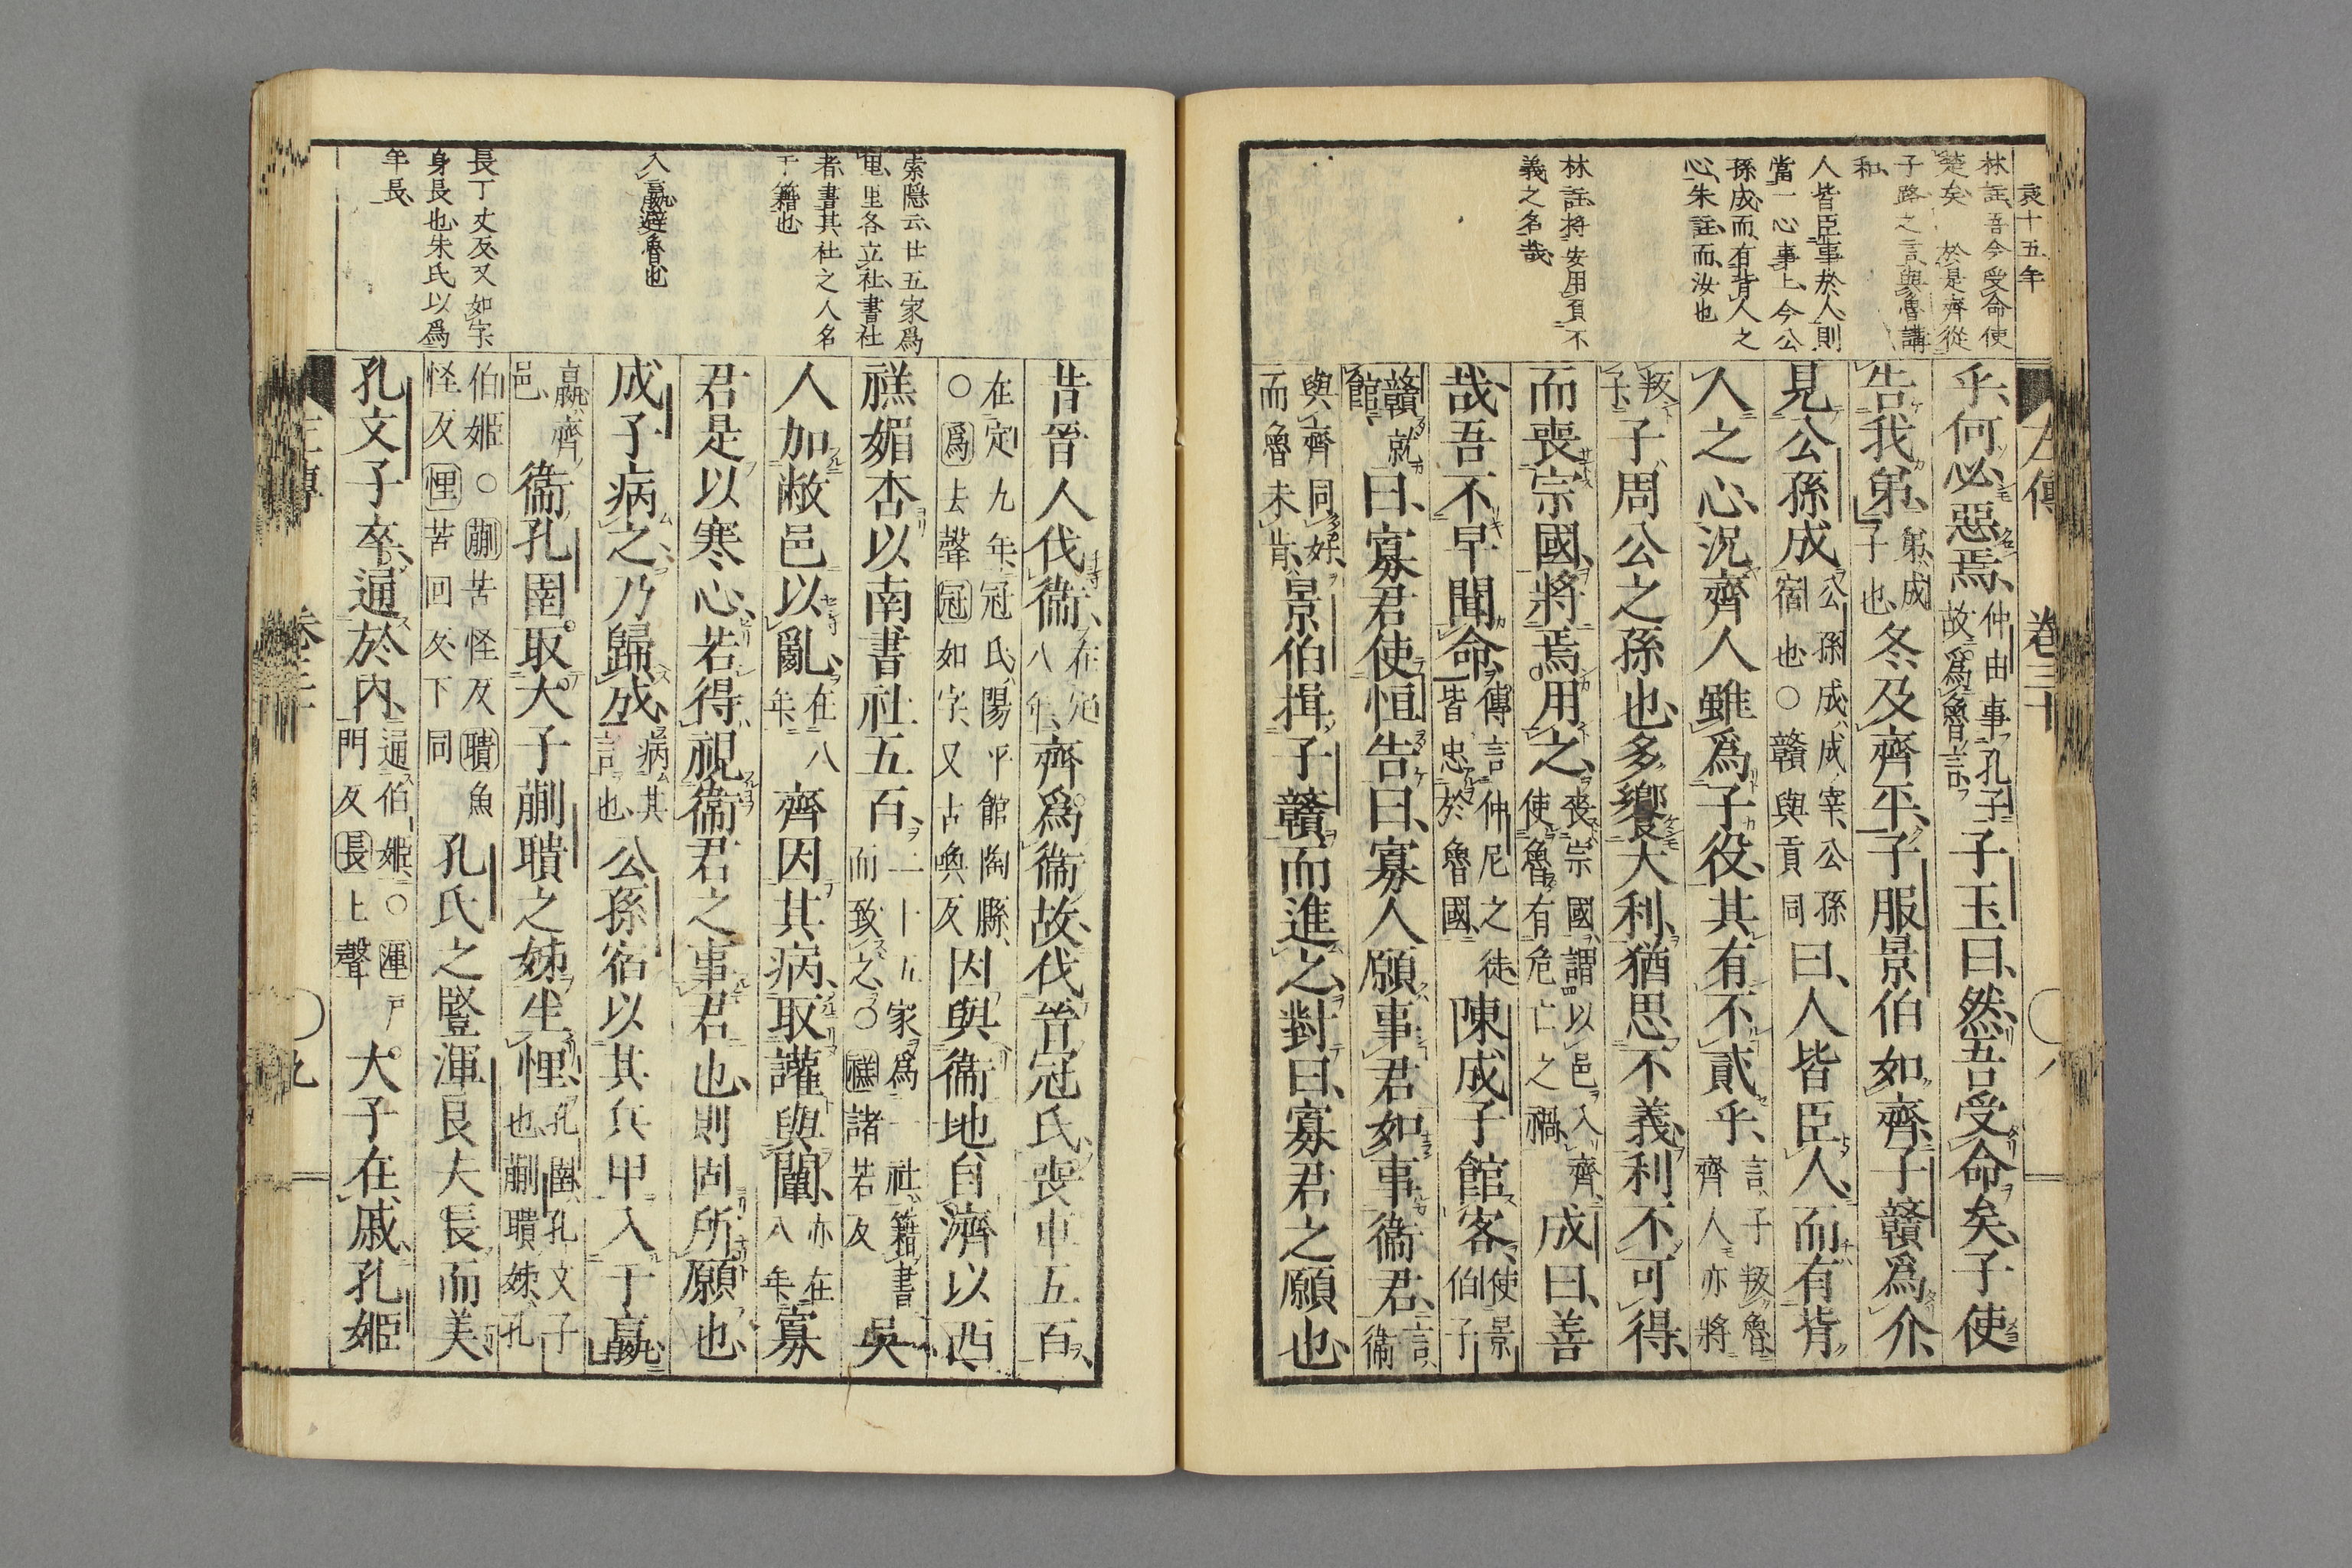 哀十五年
林註、吾今受命使
楚矣、於是齊從
子路之言、與魯講
和、
人皆臣事於人、則
當一心事上、今公
孫成、而有背人之
心、朱註、而、汝也
林註、將安用負不
義之名哉、
左傳 卷三十
乎、何必惡焉、仲由事孔子故爲魯言、子玉曰、然、吾受命矣、子使
告我弟、弟、成子也、冬、及齊平、子服景伯如齊、子贛爲介、
見公孫成、公孫成、成宰、公孫宿也、○贛與貢同曰、人皆臣人、而有背
人之心、況齊人雖爲子役、其有不貳乎、言、子叛魯、齊人亦將
叛子、子、周公之孫也、多饗大利、猶思不義、利不可得、
而喪宗國、將焉用之、喪宗國、謂以邑入齊、使魯有危亡之禍、成曰、善
哉、吾不早聞命、傳言仲尼之徒、皆忠於魯國、陳成子館客、使景伯子
贛就館、曰、寡君使恒告曰、寡人願事君、如事衞君、言、衞
與齊同好、而魯未肯、景伯揖子贛而進之、對曰、寡君之願也、
昔晉人伐衞、在定八年、齊爲衞故、伐晉冠氏、喪車五百、
在定九年、冠氏、陽平館陶縣、○爲去聲冠如字、又古喚反因與衞地、自濟以西、
禚媚杏以南、書社五百、二十五家爲一社、籍書而致之、○禚諸若反吳
人加敝邑以亂、在八年、齊因其病、取讙與闡、亦在八年、寡
君是以寒心、若得視衞君之事君也、則固所願也、
成子病之、乃歸成、病其言也、公孫宿以其兵甲入于嬴、
嬴、齊邑、衞孔圉取大子蒯聵之姊、生悝、孔圉、孔文子也、蒯聵姊、孔
伯姬○蒯苦怪反聵魚怪反悝苦回反、下同孔氏之豎渾良夫、長而美、
孔文子卒、通於內、通伯姬、○渾戶門反長上聲大子在戚、孔姬
索隱云、廿五家爲
里、里各立社、書社
者、書其社之人名
于籍也
入嬴、避魯也
長丁丈反、又如字
身長也、朱氏以爲
年長、
左傳 卷三十 九